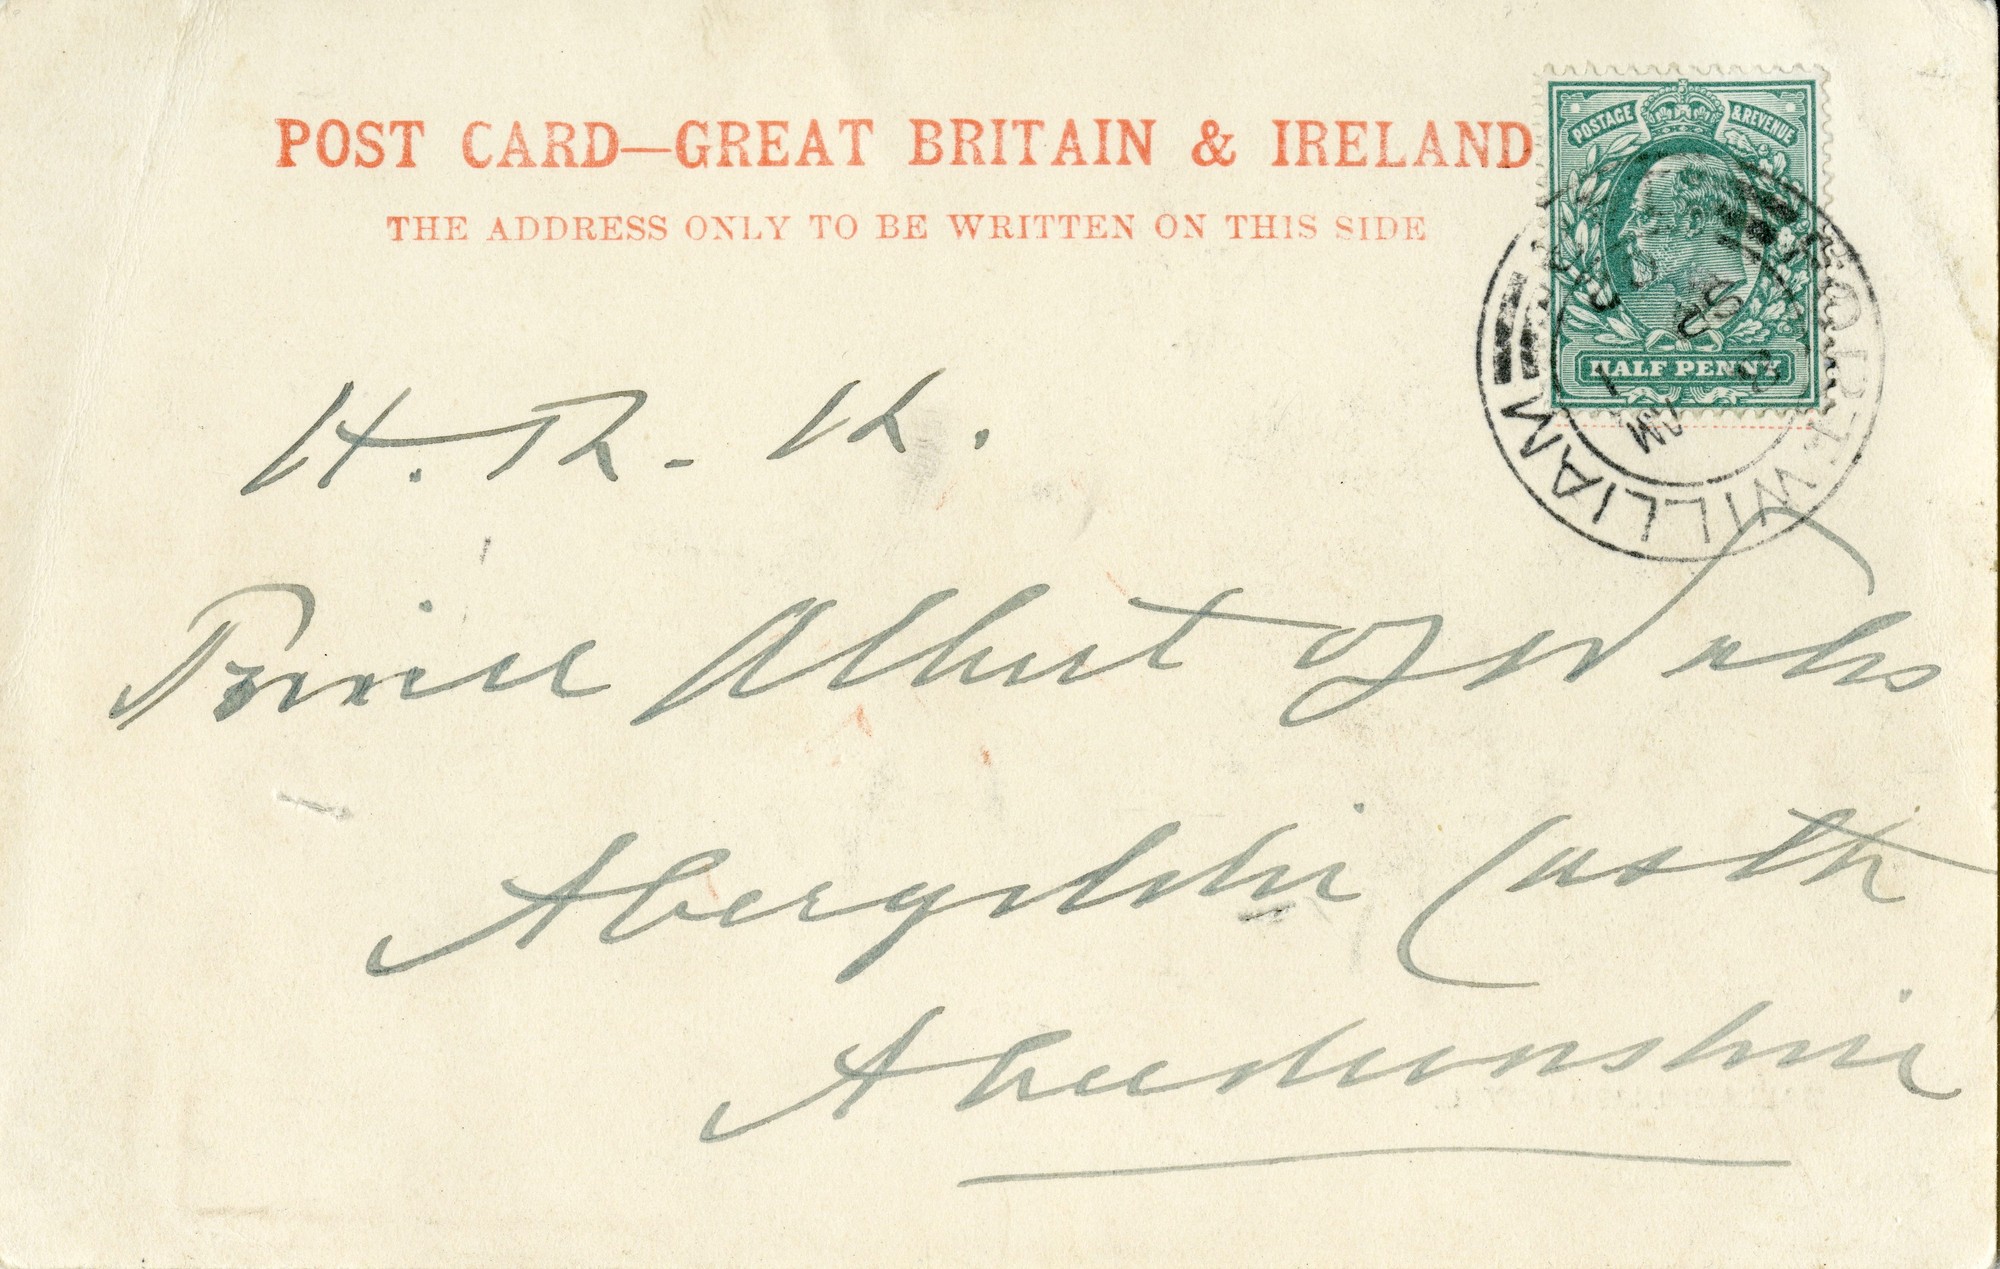 POST CARD—GREAT BRITAIN & IRELAND
THE ADDRESS ONLY TO BE WRITTEN ON THIS SIDE
POSTAGE & REVENUE
HALF PENNY
FORT-WILLIAM
AM
SP
H. R. H.
Prince Albert of Wales
Abergeldie Castle
Aberdeenshire